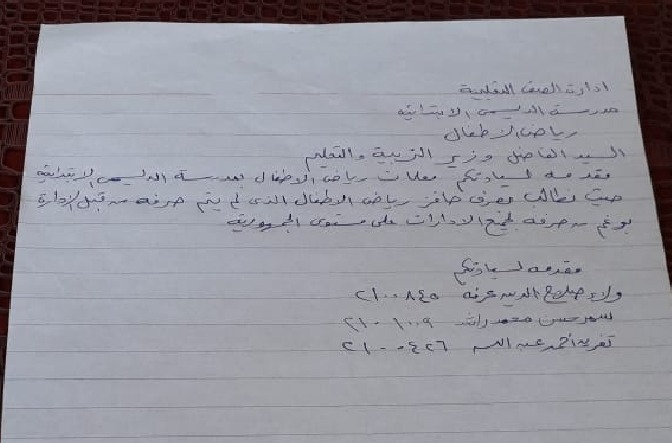 ادارة الصف التعليمية
مدرسة الديسمى الابتدائية
رياض الاطفال
السيد الفاضل وزير التربية والتعليم
مقدمه لسيادتكم معلمات رياض الاطفال بمدرسة الديسمى الابتدائية
حيث نطالب بصرف حافز رياض الاطفال الذى لم يتم صرفه من قبل الإدارة
برغم من صرفه لجميع الادارات على مستوى الجمهورية
مقدمه لسيادتكم
ولاء صلاح الدين عرفه ٢١٠٠٨٤٥
سمر حسن محمد راشد ٢١٠١٠٠٩
تغريد أحمد عبد ٢١٠٠٤٢٦